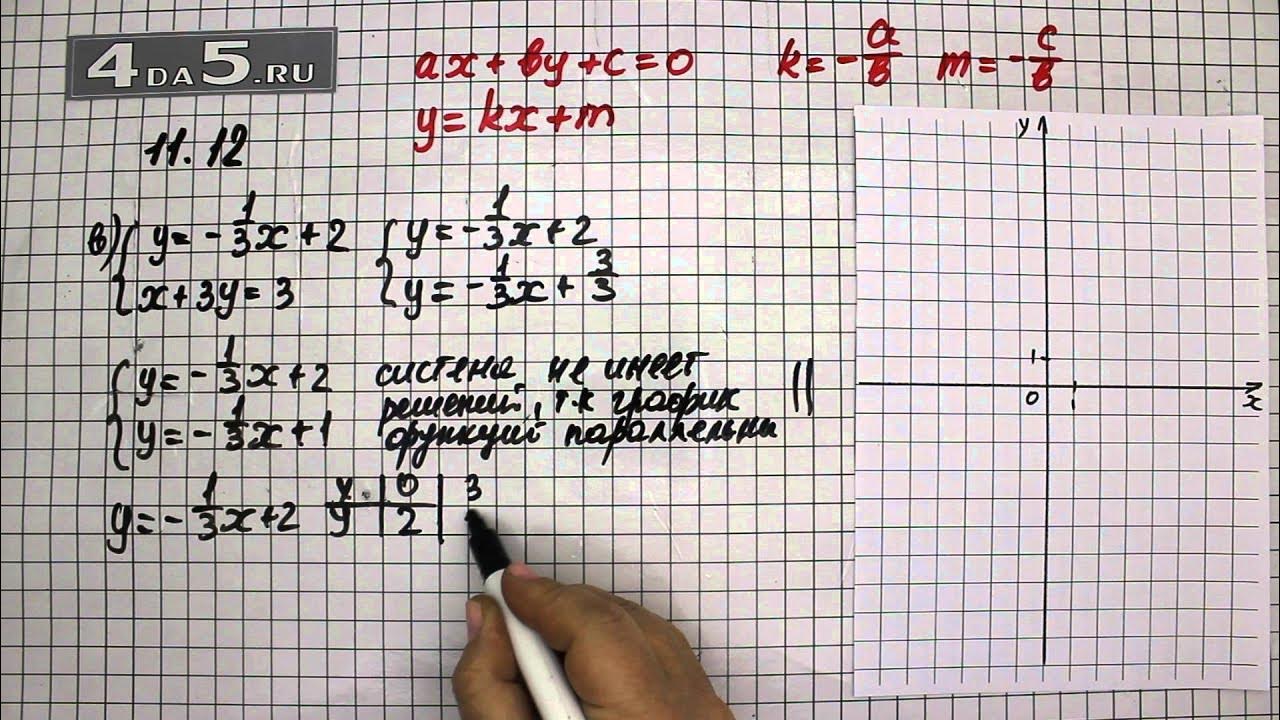 4DA5.RU
ax + by + c = 0 k = -a/b m = -c/b
y = kx + m
11.12
в) { y = -1/3 x + 2 { y = -1/3 x + 2
{ x + 3y = 3 { y = -1/3 x + 3/3
{ y = -1/3 x + 2 система не имеет
решений, т.к график ||
{ y = -1/3 x + 1 функций параллельны
y = -1/3 x + 2 x | 0 | 3
y | 2 |
y
1
0 1 x